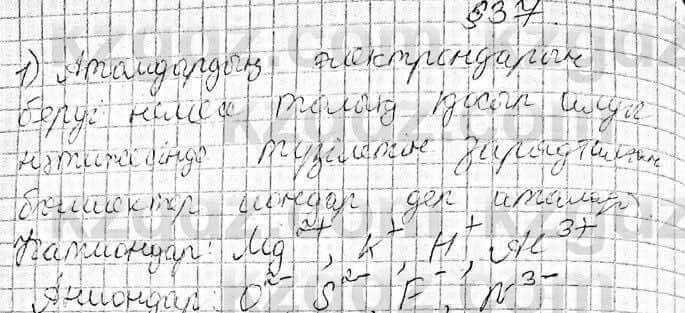 §37.
1) Атомдардың электрондарын
беруі немесе толық қосып алуы
нәтижесінде түзілетін зарядталған
бөлшектер иондар деп аталады.
Катиондар: Mg²⁺, K⁺, H⁺, Al³⁺
Аниондар: O²⁻, S²⁻, F⁻, N³⁻